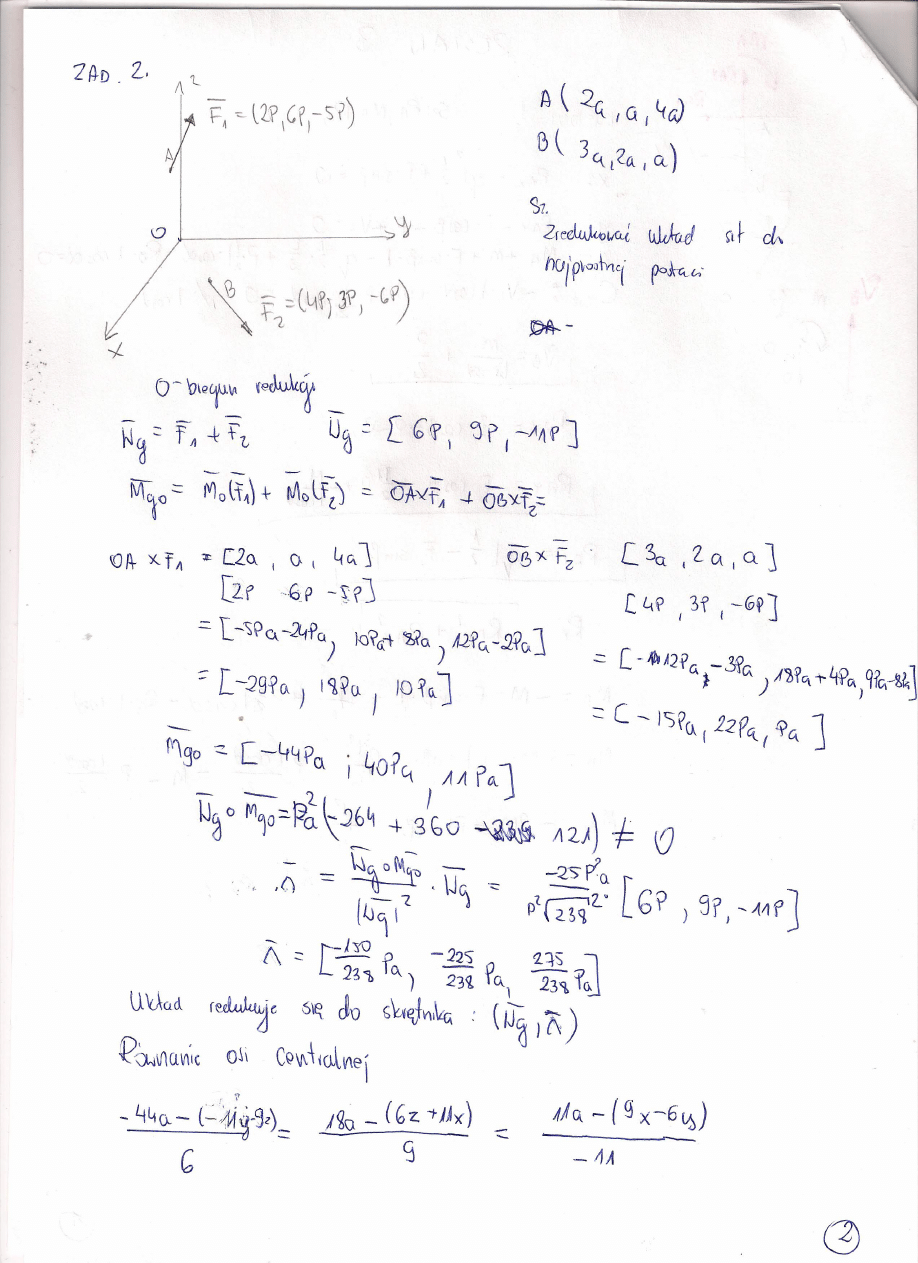 ZAD. 2.
z
F̄₁ = (2P, 6P, -5P)
A
O
y
B
F̄₂ = (4P, 3P, -6P)
x
A ( 2a , a , 4a)
B ( 3a, 2a, a)
Sz.
Zredukować układ sił do
najprostszej postaci
O - biegun redukcji
W̄g = F̄₁ + F̄₂   W̄g = [ 6P, 9P, -11P ]
M̄go = M̄o(F̄₁) + M̄o(F̄₂) = O̅A̅ x F̄₁ + O̅B̅ x F̄₂ =
OA x F₁ = [2a , a, 4a]   O̅B̅ x F̄₂   [ 3a , 2a , a ]
[2P 6P -5P]   [ 4P , 3P , -6P]
= [-5Pa-24Pa, 10Pa+8Pa, 12Pa-2Pa]   = [-12Pa, -3Pa, 18Pa+4Pa, 9Pa-8Pa]
= [-29Pa, 18Pa, 10Pa]   = [-15Pa, 22Pa, Pa ]
M̄go = [-44Pa ; 40Pa , 11Pa]
W̄g ∘ M̄go = P²a (-264 + 360 - 121) ≠ 0
λ̄ = (W̄g ∘ M̄go)/|W̄g|² · W̄g = (-25P²a)/(P²√238²) · [6P, 9P, -11P]
λ̄ = [-150/238 Pa, -225/238 Pa, 275/238 Pa]
Układ redukuje się do skrętnika : (W̄g, λ̄)
Równanie osi centralnej
(-44a - (-11y-9z))/6 = (18a - (6z+11x))/9 = (11a - (9x-6y))/-11
2